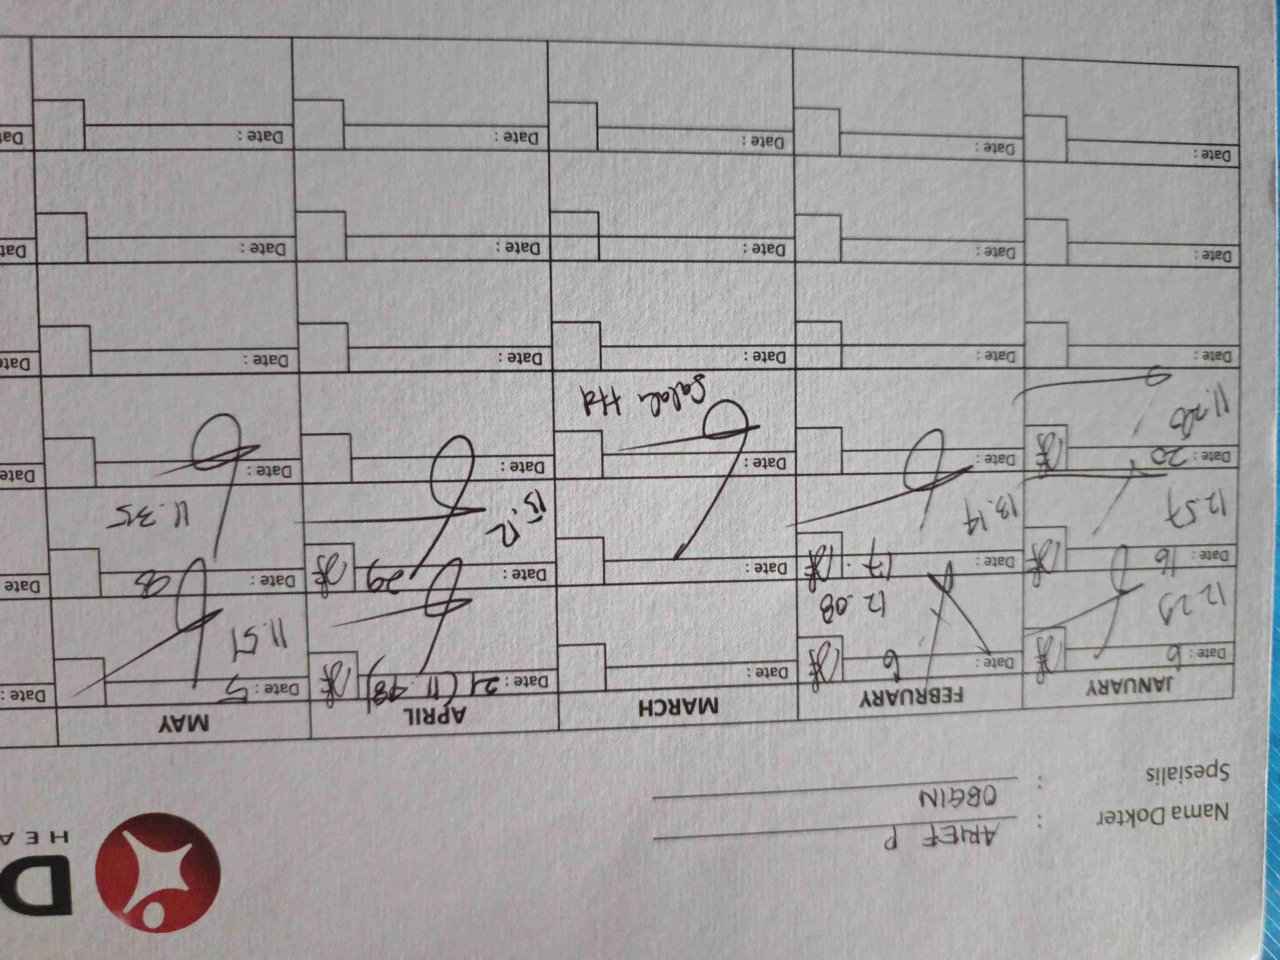 D
HEA
Nama Dokter : ARIEF P
Spesialis : OBGIN
JANUARY FEBRUARY MARCH APRIL MAY
Date : 6 Date : 6 Date : Date : 21 (11.48) Date : 5 Date :
12.23 12.08 11.51
Date : 16 Date : 17 Date : Date : 29 Date : Date
12.57 13.14 13.12 11.35
Date : 20 Date : Date : Date : Date : Date
Salah ttd
Date : Date : Date : Date : Date : Date
Date : Date : Date : Date : Date : Dat
Date : Date : Date : Date : Date : Dat